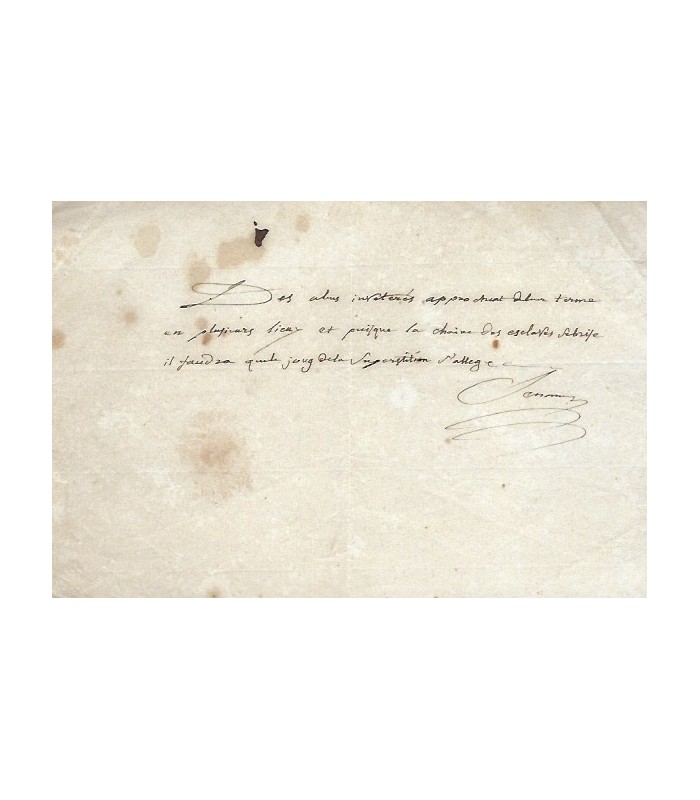 Des abus invétérés approchent de leur terme
en plusieurs lieux et puisque la chaine des esclaves se brise
il faudra que le joug de la Superstition s'allege